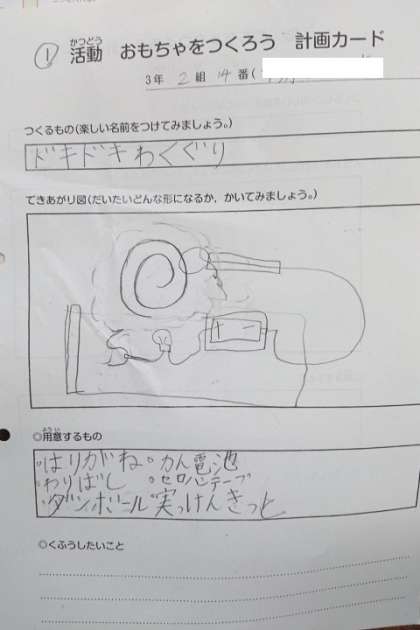 ① 活動 おもちゃをつくろう 計画カード
3年 2組 14番(
つくるもの(楽しい名前をつけてみましょう。)
ドキドキわくぐり
できあがり図(だいたいどんな形になるか、かいてみましょう。)
+ -
◎用意するもの
・はりがね ・かん電池
・わりばし ・セロハンテープ
・ダンボール ・実っけんきっと
◎くふうしたいこと